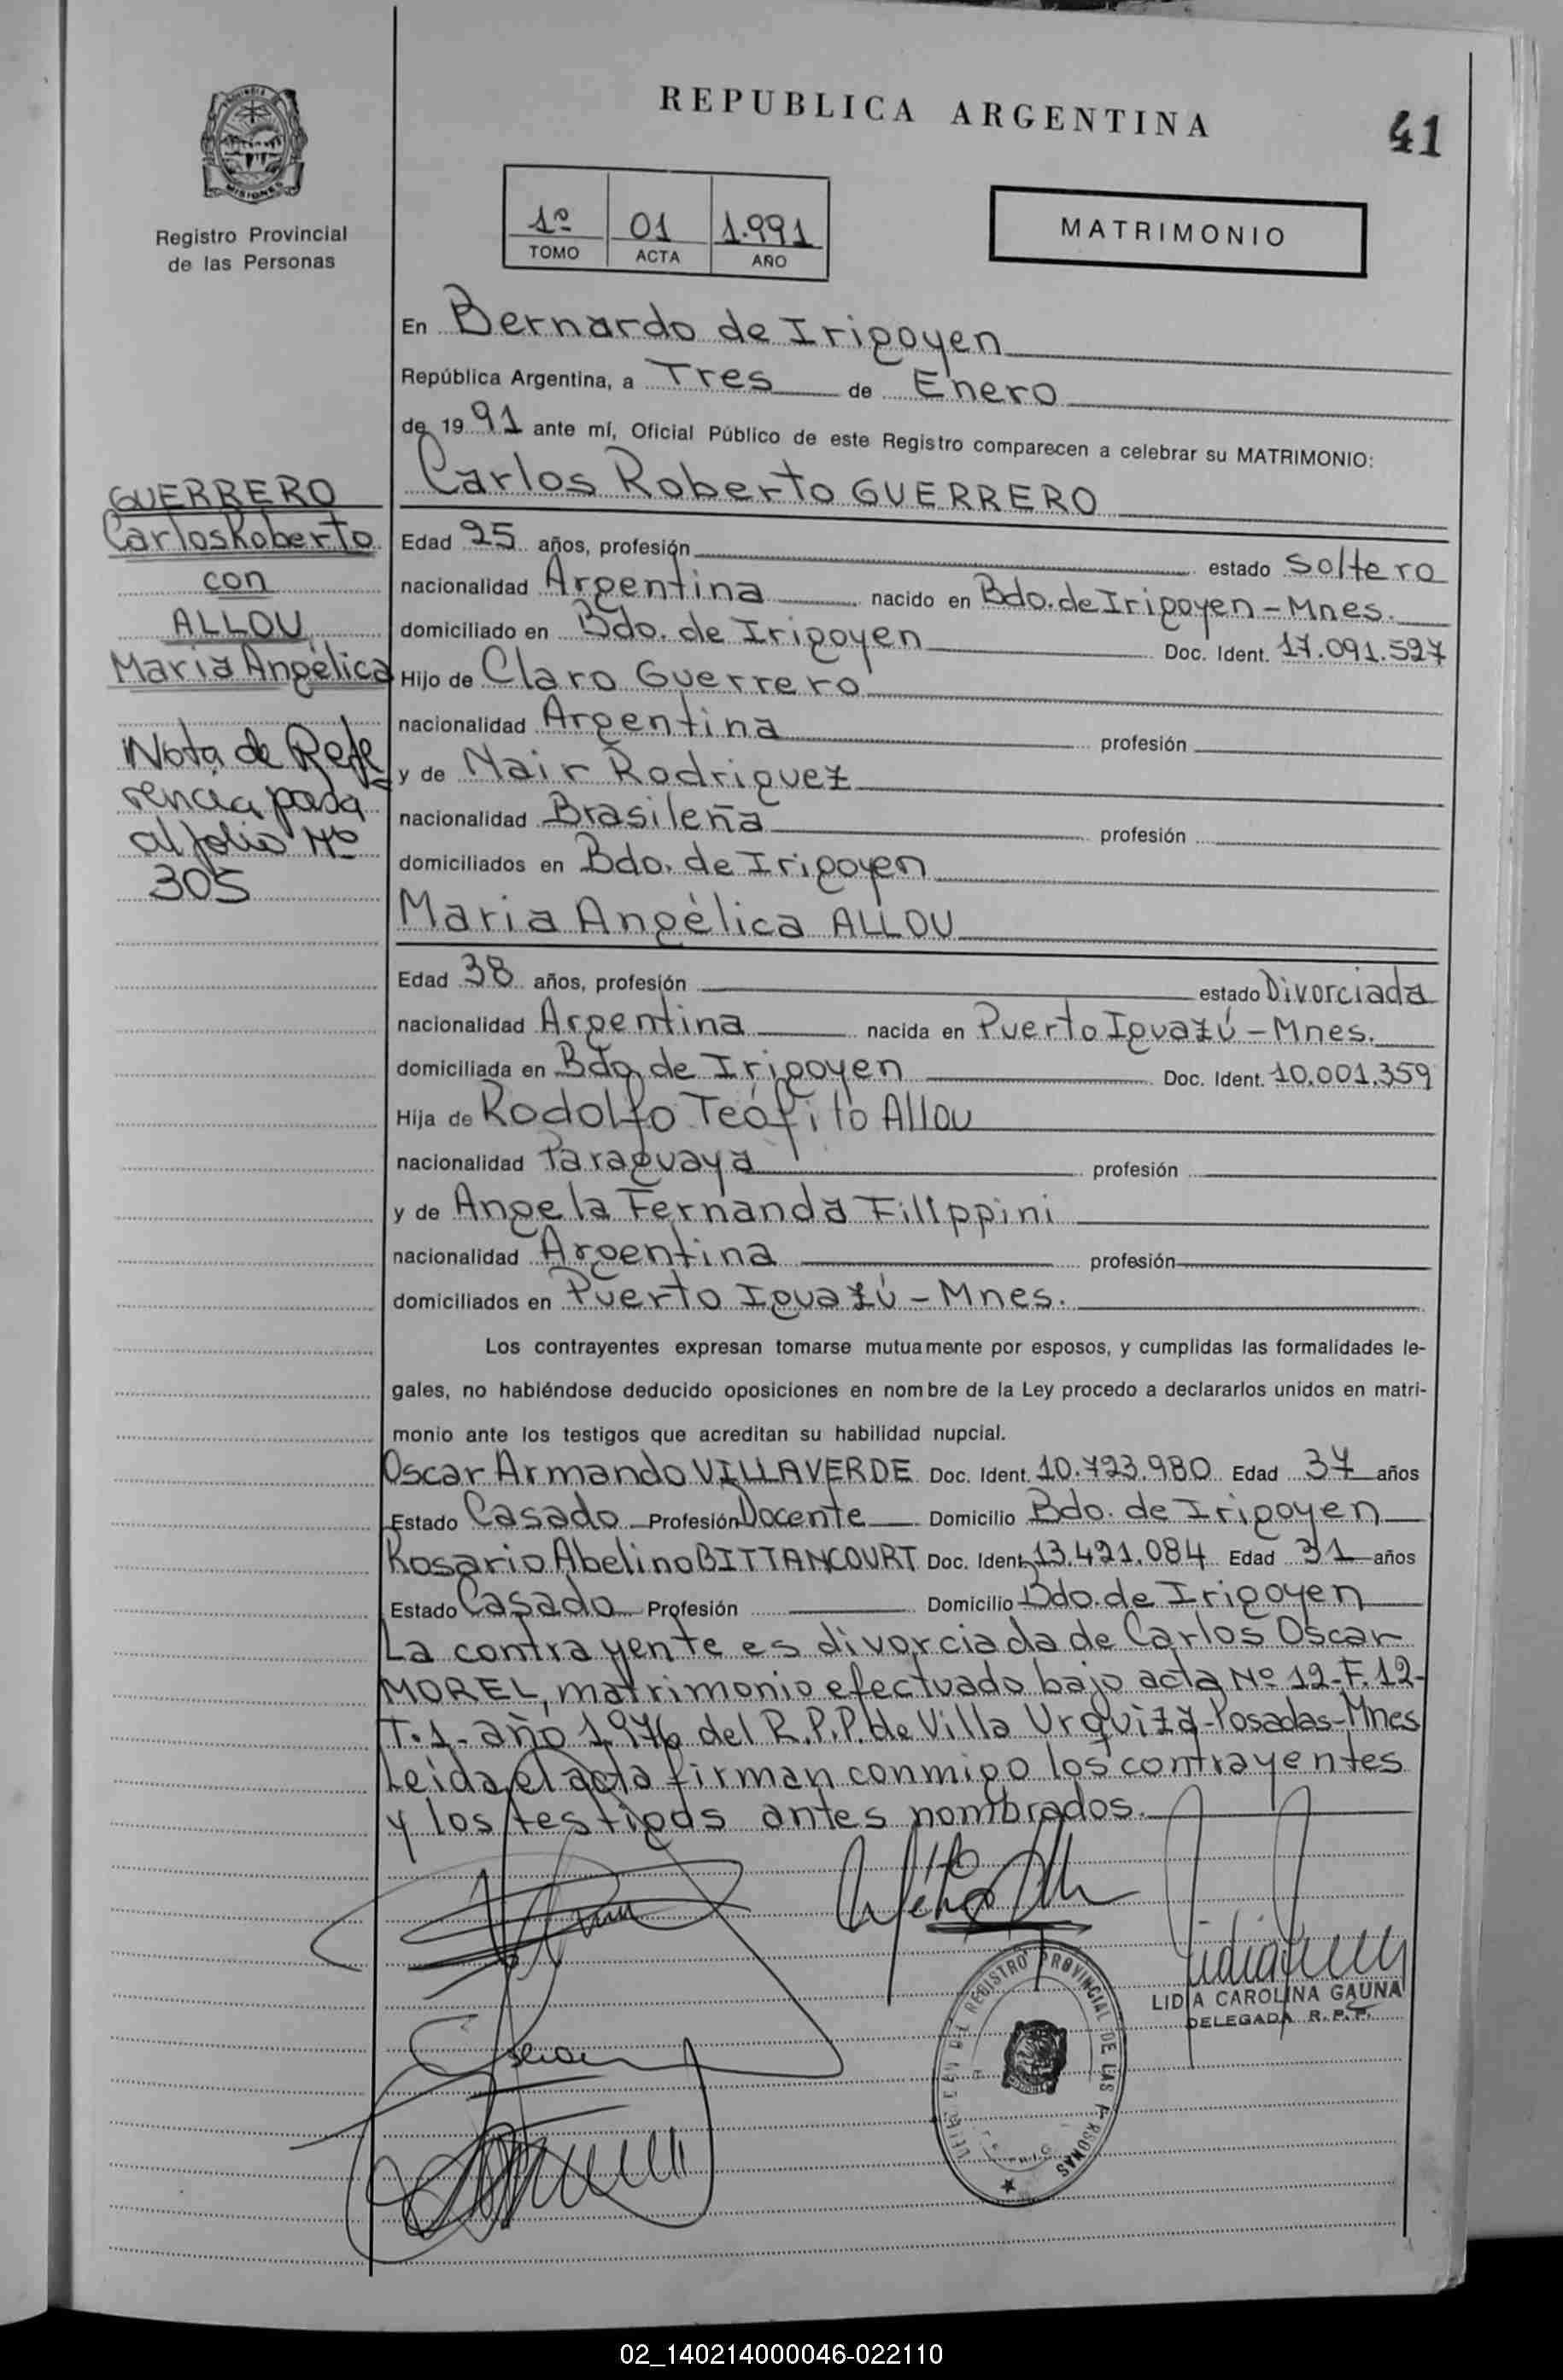 REPUBLICA ARGENTINA
41
MISIONES
Registro Provincial
de las Personas
1º 01 1.991
TOMO ACTA AÑO
MATRIMONIO
En Bernardo de Irigoyen
República Argentina, a Tres de Enero
de 1991 ante mí, Oficial Público de este Registro comparecen a celebrar su MATRIMONIO:
GUERRERO
Carlos Roberto
con
ALLOU
Maria Angélica
Nota de Refe
rencia pasa
al folio Nº
305
Carlos Roberto GUERRERO
Edad 25 años, profesión estado soltero
nacionalidad Argentina nacido en Bdo. de Irigoyen - Mnes.
domiciliado en Bdo. de Irigoyen Doc. Ident. 17.091.527
Hijo de Claro Guerrero
nacionalidad Argentina profesión
y de Nair Rodriguez
nacionalidad Brasileña profesión
domiciliados en Bdo. de Irigoyen
Maria Angélica ALLOU
Edad 38 años, profesión estado Divorciada
nacionalidad Argentina nacida en Puerto Iguazú - Mnes.
domiciliada en Bdo. de Irigoyen Doc. Ident. 10.001.359
Hija de Rodolfo Teófilo Allou
nacionalidad Paraguaya profesión
y de Angela Fernanda Filippini
nacionalidad Argentina profesión
domiciliados en Puerto Iguazú - Mnes.
Los contrayentes expresan tomarse mutuamente por esposos, y cumplidas las formalidades le-
gales, no habiéndose deducido oposiciones en nombre de la Ley procedo a declararlos unidos en matri-
monio ante los testigos que acreditan su habilidad nupcial.
Oscar Armando VILLAVERDE Doc. Ident. 10.723.980 Edad 37 años
Estado Casado Profesión Docente Domicilio Bdo. de Irigoyen
Rosario Abelino BITTANCOURT Doc. Ident. 13.421.084 Edad 31 años
Estado Casado Profesión Domicilio Bdo. de Irigoyen
La contrayente es divorciada de Carlos Oscar
MOREL, matrimonio efectuado bajo acta Nº 12-F.12-
T.1- año 1.976 del R.P.P. de Villa Urquiza-Posadas-Mnes
Leída el acta firman conmigo los contrayentes
y los testigos antes nombrados.
LIDIA CAROLINA GAUNA
DELEGADA R.P.P.
REGISTRO PROVINCIAL DE LAS PERSONAS
02_140214000046-022110